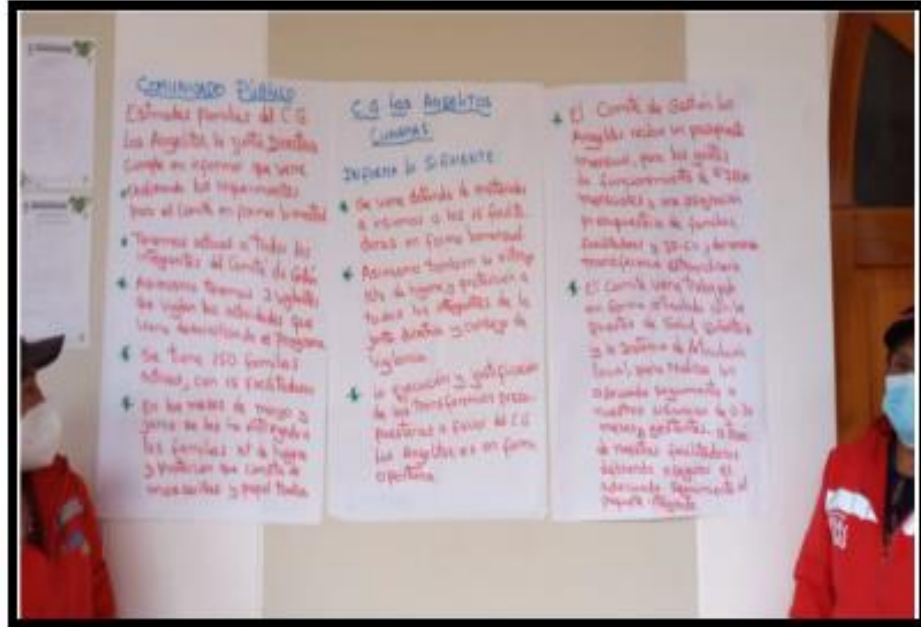 COMUNICADO PÚBLICO
Estimadas familias del C.G
Los Angelitos, la junta Directiva
cumple en informar que viene
los requerimientos
para el Comité en forma bimestral
Tenemos activas a todos los
integrantes del Comité de Gestión
Asimismo tenemos 3 vigilantes
que vigilan las actividades que
viene desarrollando el Programa
Se tiene 150 familias
activas, con 15 facilitadoras
En los meses de mayo y
junio se les ha entregado a
las familias kit de higiene
y protección que consta de
mascarillas y papel toalla
C.G Los Angelitos
INFORMA lo SIGUIENTE:
Se viene dotando de materiales
e insumos a las 15 facilita-
doras en forma bimensual
Asimismo también se entrega
kits de higiene y protección a
todos los integrantes de la
junta directiva y consejo de
vigilancia
La ejecución y justificación
de las transferencias presu-
puestarias a favor del C.G
Los Angelitos es en forma
oportuna
El Comité de Gestión Los
Angelitos recibe un presupuesto
mensual, para los gastos
de funcionamiento de
mensuales y una asignación
presupuestaria de familias
facilitadoras y
transferencia extraordinaria
El Comité viene trabajando
en forma articulada con los
puestos de Salud,
y la Instancia de Articulación
Local, para realizar un
adecuado seguimiento a
nuestros usuarios de 0-36
meses y gestantes, a través
de nuestras facilitadoras
debiendo asegurar el
adecuado seguimiento al
paquete integrado